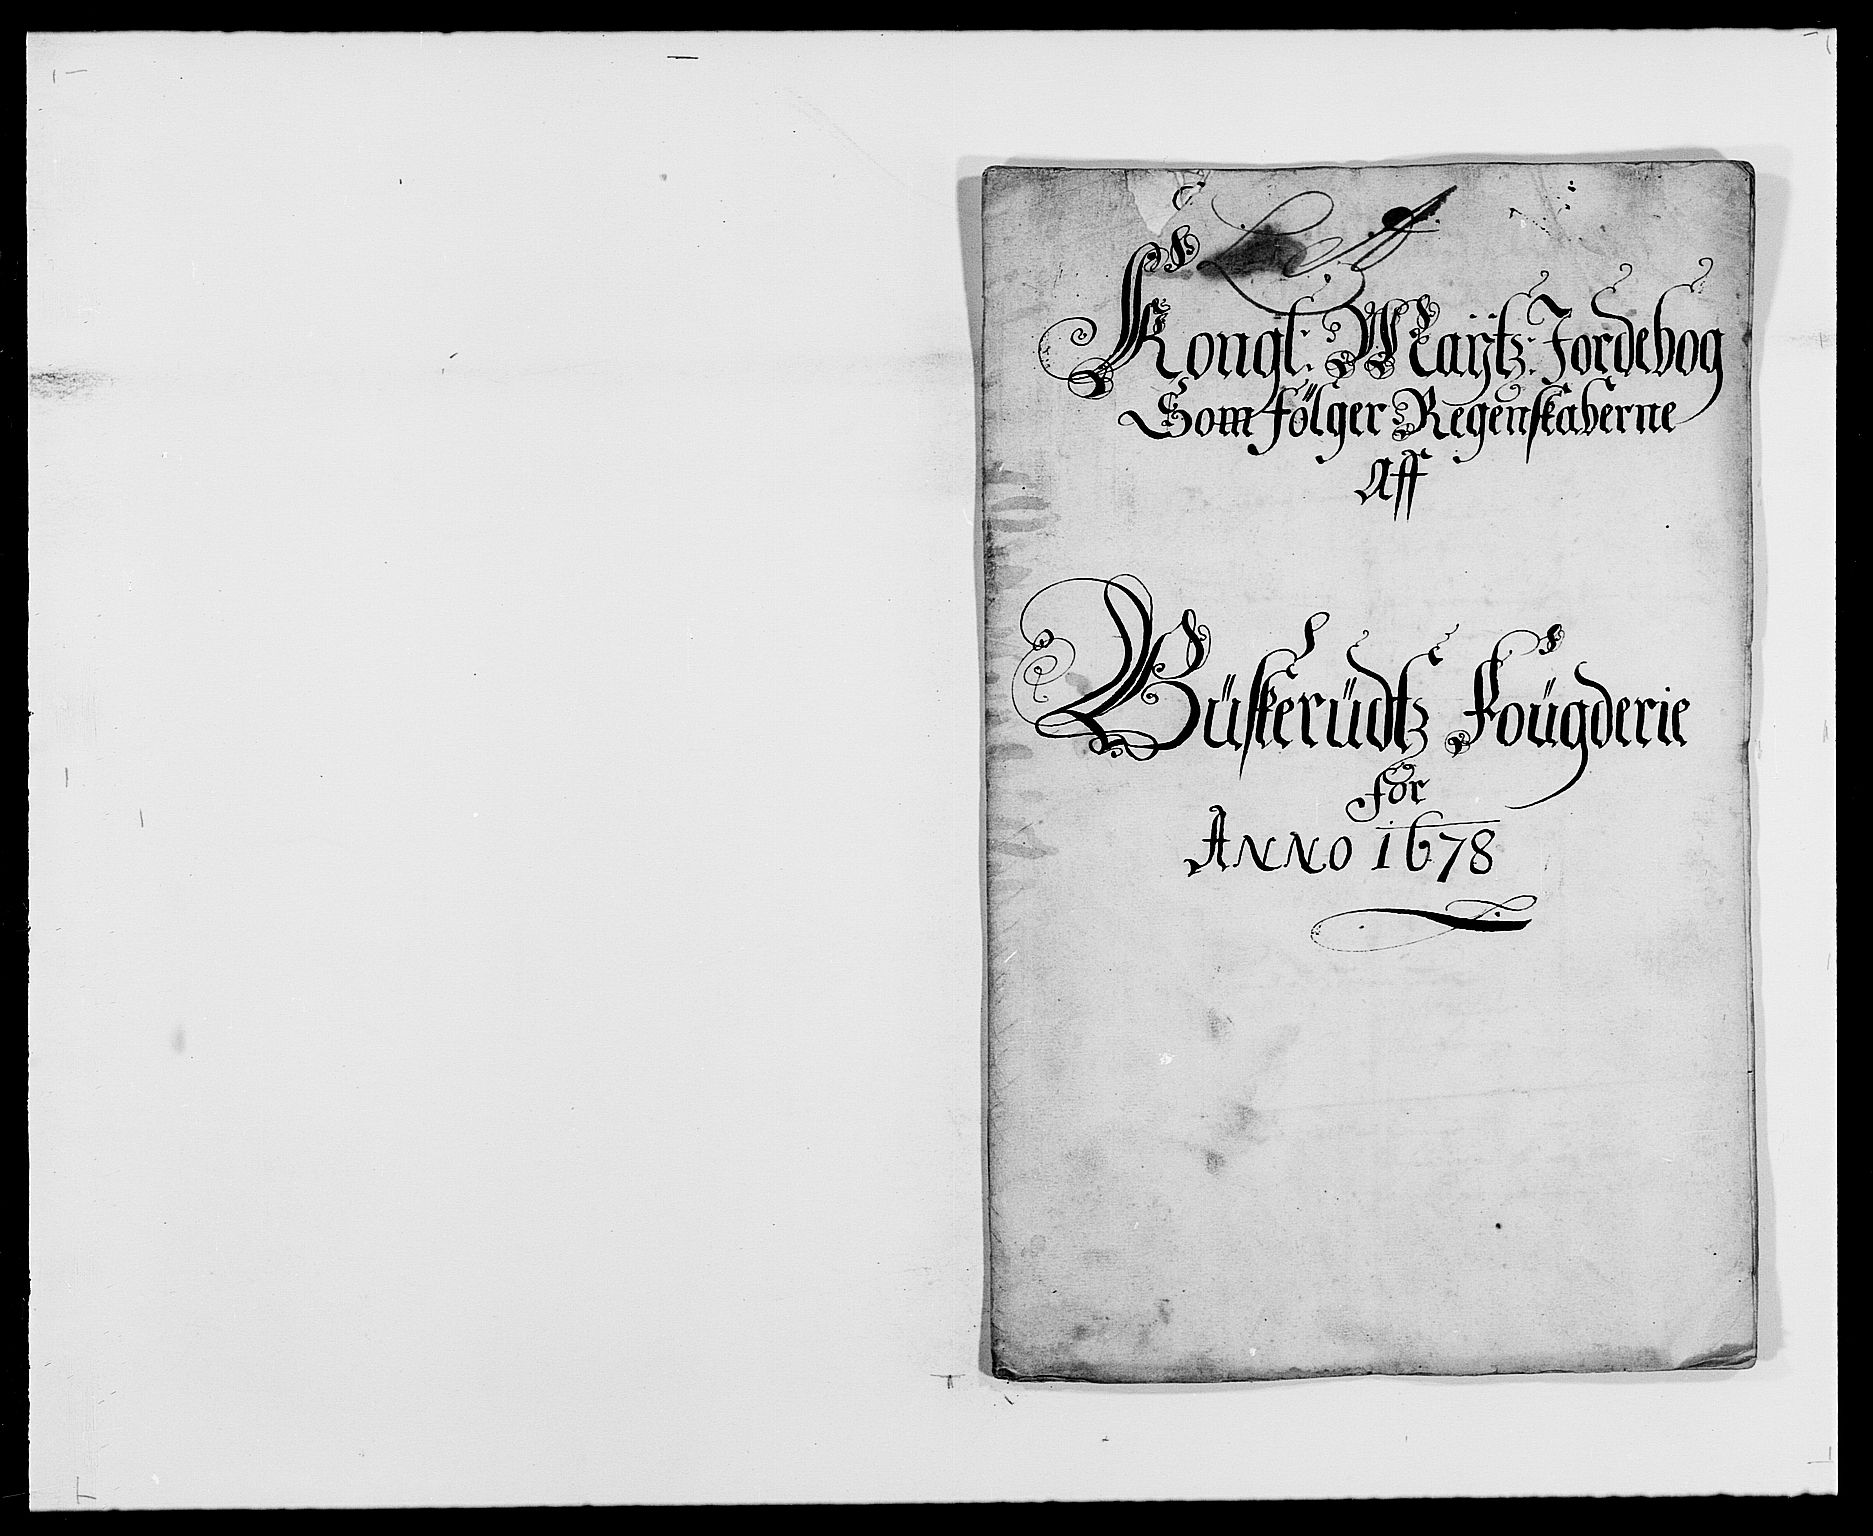 Kongl: Maÿtz: Jordebog
Som fölger Regenskaberne
Aff
Büskerüdtz Foügderie
for
ANNO 1678